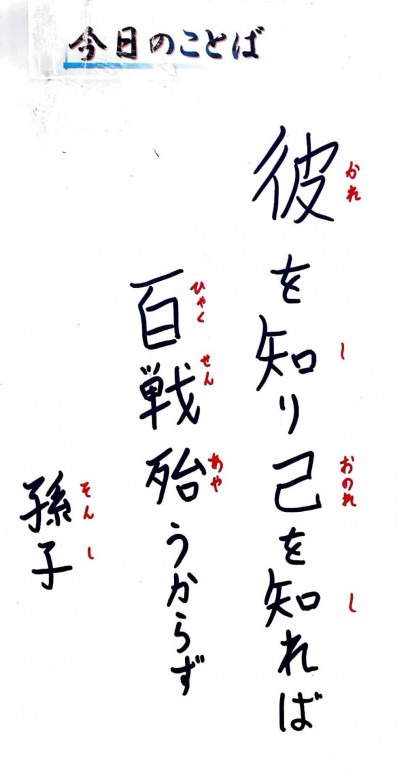 今日のことば
彼を知り己を知れば
かれ し おのれ し
百戦殆うからず
ひゃく せん あや
孫子
そん し